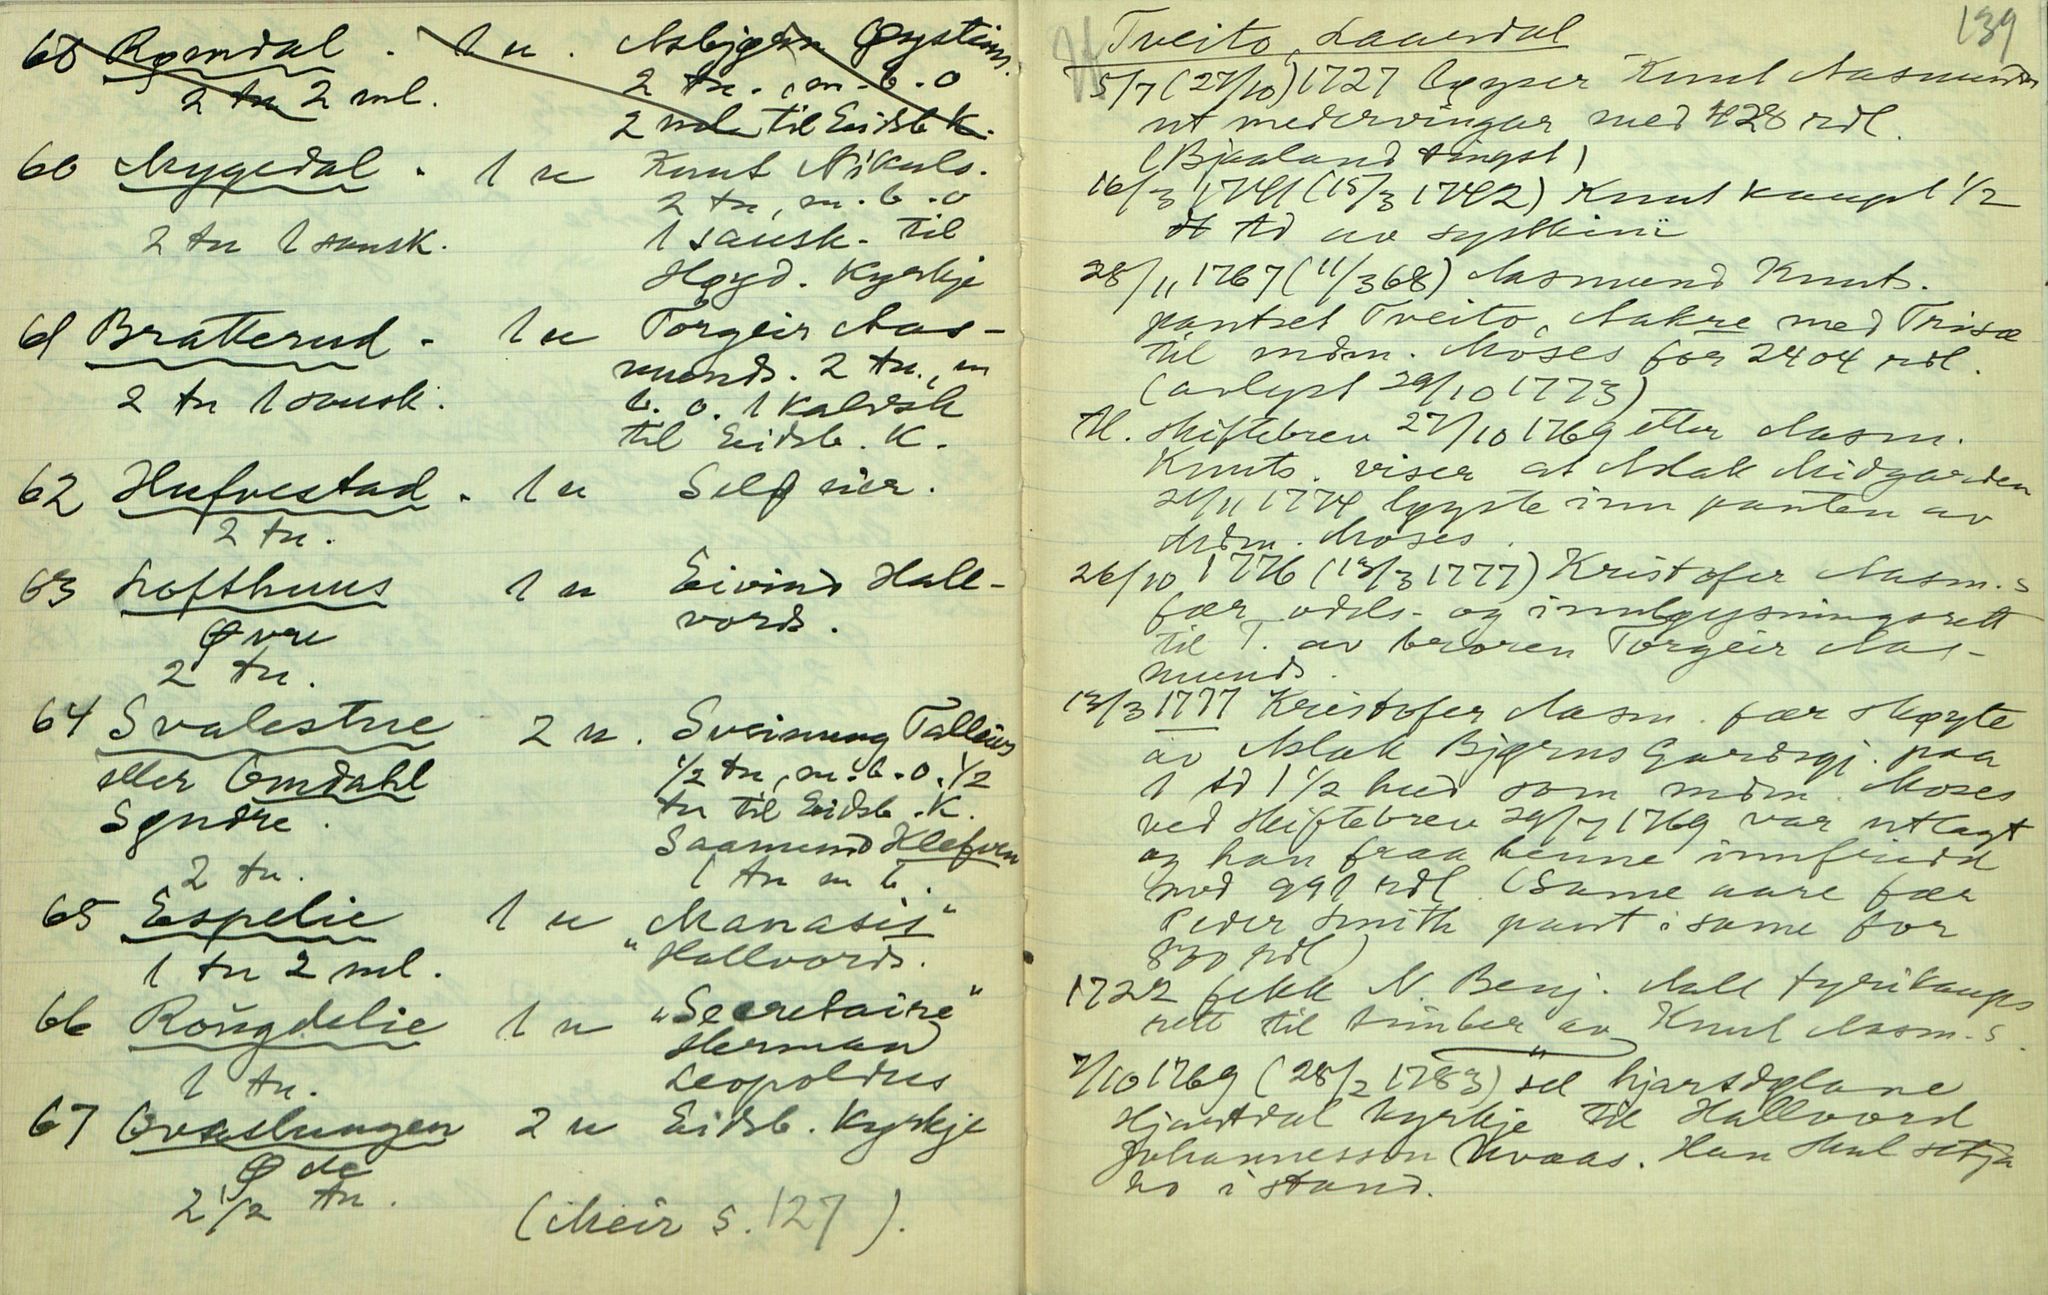 60 Rømdal . 1 u . Asbjørn Øystins.
2 tn 2 ml. 2 tn., m. b. o
2 ml til Eidsb K.
60 Mygedal . 1 u Knut Nikuls.
2 tn, m. b. o
2 tn 1 sausk. 1 sausk. til
Høyd. Kyrkje
61 Bratterud . 1 u Torgeir Aas-
munds. 2 tn., m
2 tn 1 sausk. b. o. 1 kalvsk
til Eidsb. K.
62 Hufvestad . 1 u Self eier.
2 tn.
63 Lofthuus 1 u Eivind Hall-
Øvre vords.
2 tn.
64 Svalestue 2 u . Sveinung Talleivs
eller Omdahl 1/2 tn, m. b. o. 1/2
Syndre. tn til Eidsb. K.
Saamund Klefven
2 tn. 1 tn m b.
65 Espelie 1 u "Manasis"
1 tn 2 ml. "Hallvords.
66 Roŭgdelie 1 u "Secretaire"
Herman
1 tn. Leopoldus
67 2 u Eidsb. Kyrkje
Øde
2 1/2 tn.
(Meir s. 127).
139
Tveito, Laurdal
5/7 (27/10) 1727 løyser Knut Aasmunds
ut medervingar med 428 rdl.
(Bjaaland tingst)
16/3 1741 (15/3 1742) Knut kaupt 1/2
td av syskin
28/11 1767 (11/3 68) Aasmund Knuts.
pantset Tveito, Aakre med Trisæ
til mdm. Moses for 2404 rdl.
(avlyst 29/10 1773)
Al. Skiftebrev 27/10 1769 etter Aasm.
Knuts. viser at Aslak Midgarden
21/11 1774 løyste inn panten av
Mdm. Moses.
26/10 1776 (13/3 1777) Kristofer Aasm.s
fær odels- og innløysningsrett
til T. av broren Torgeir Aas-
munds.
13/3 1777 Kristofer Aasm. fær skøyte
av Aslak Bjørns Gardsgj. paa
1 td 1 1/2 hud som mdm. Moses
ved Skiftebrev 29/7 1769 var utlagt
og han fraa henne innfridd
med 991 rdl. (Same aare fær
Peder Smith pant i same for
830 rdl)
1722 fekk N. Benj. Aall fyrikaups
rett til timber av Knut Aasm.s.
7/10 1769 (28/2 1783) sel hjartdølane
Hjartdal kyrkje til Hallvord
Johannesson Kvaas. Han skul setja
ho i stand.